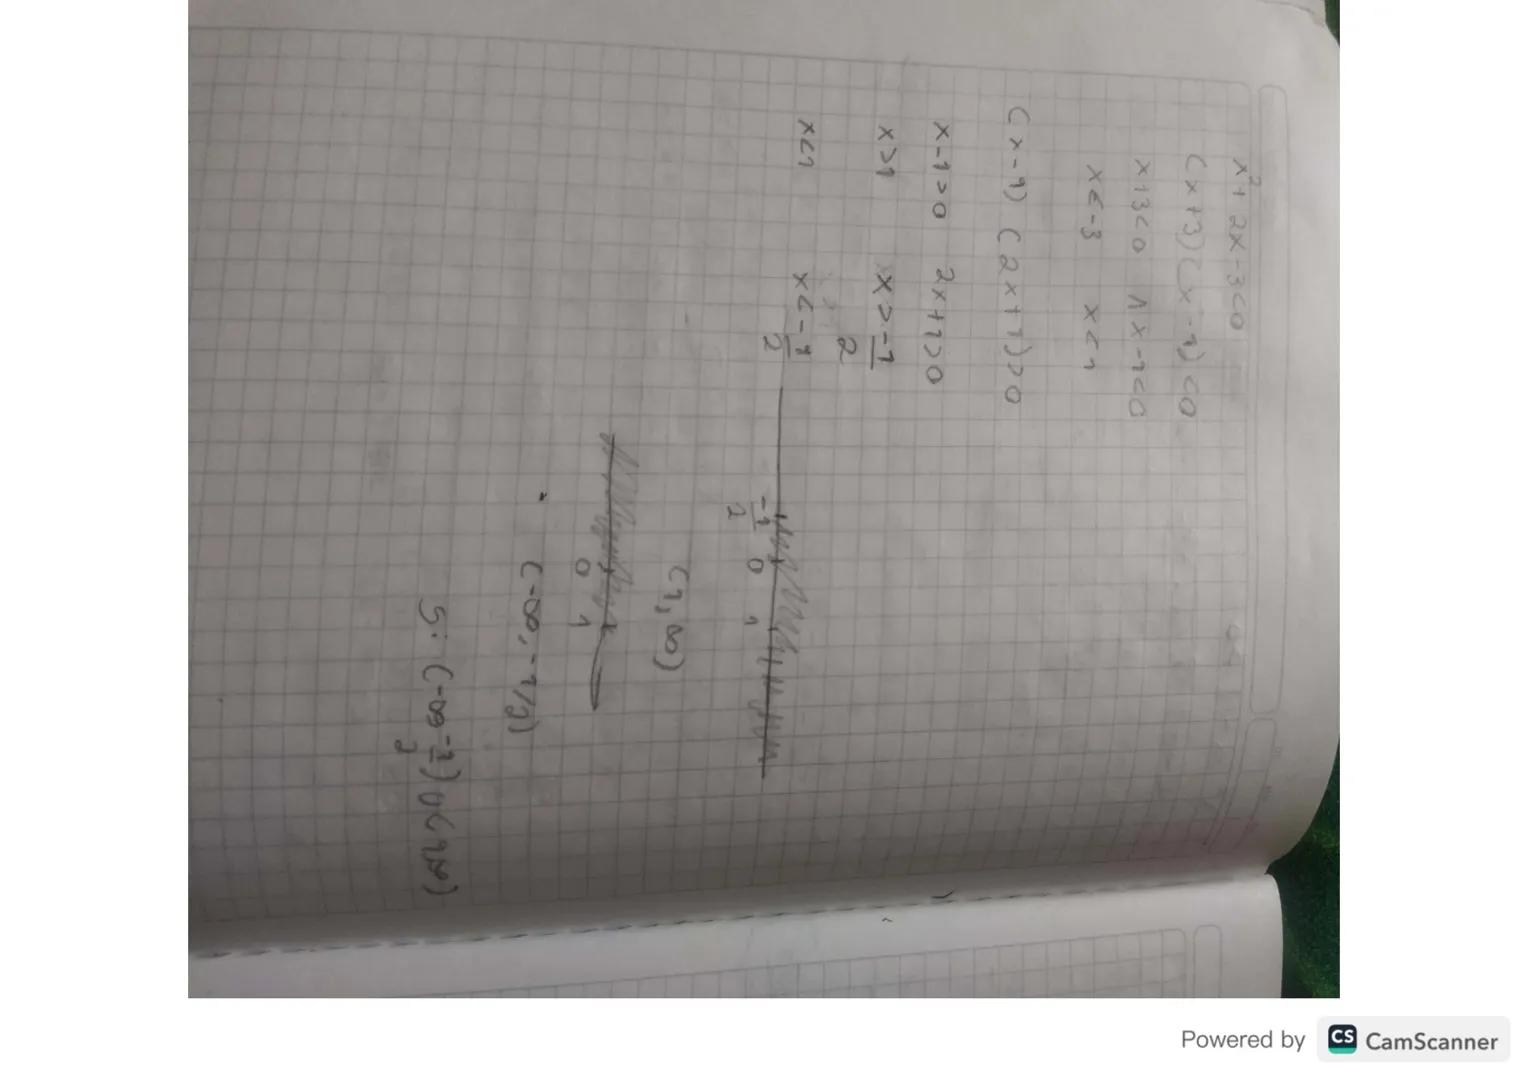 x² + 2x - 3 < 0
(x+3)(x-1) < 0
x+3<0 ∧ x-1<0
x<-3 x<1
(x-1) (2x+1)>0
x-1>0 2x+1>0
x>1 x>-1/2
x<1 x<-1/2
-1/2 0 1
(1, ∞)
0 1
(-∞, -1/2)
S: (-∞ -1/2) U (1 ∞)
Powered by CS CamScanner